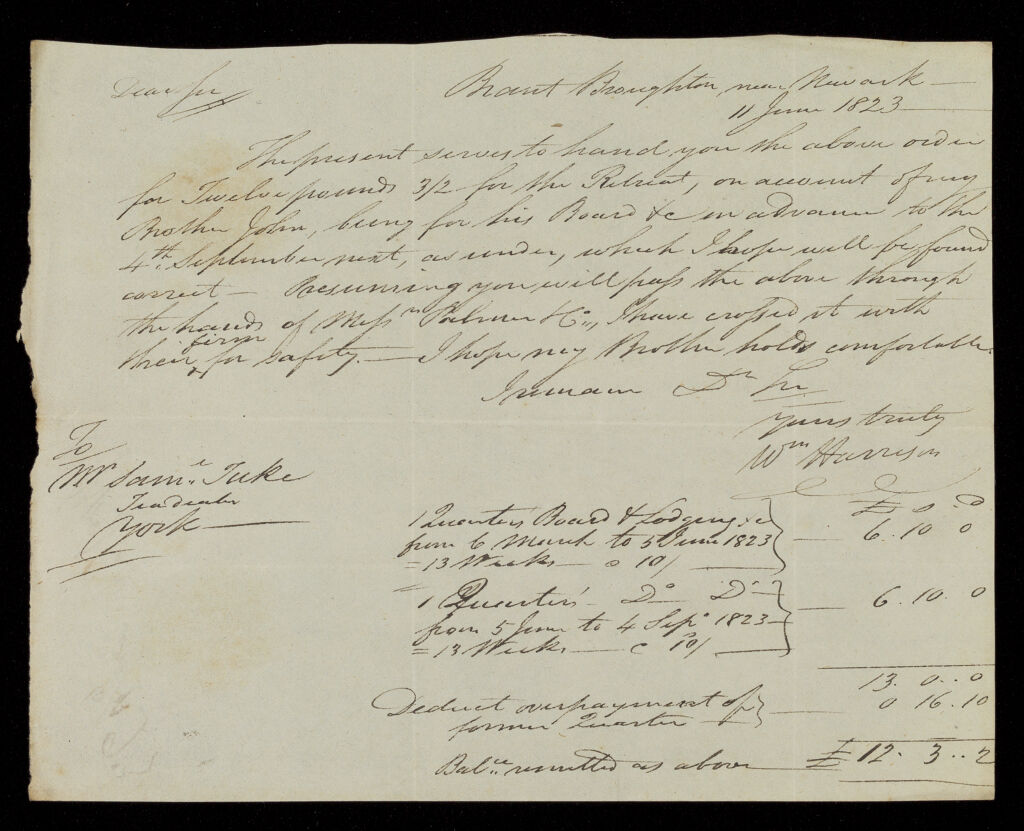 Brant Broughton, near Newark —
11 June 1823 —
Dear Sir
The present serves to hand you the above order
for Twelve pounds 3/2 for the Retreat, on account of my
Brother John, being for his Board &c in advance to the
4th. September next, as under, which I hope will be found
correct — Presuming you will pass the above through
the hands of Messrs Palmer & Co., I have crossed it with
their firm for safety. — I hope my Brother holds comfortable.
I remain Dr Sir
Yours truly
Wm Harrison
To
Mr Saml. Tuke
Teadealer
York —
£ s D
1 Quarters Board & Lodging &c
from 6 March to 5 June 1823 — 6. 10 0
= 13 Weeks — @ 10/ —
1 Quarter's — Do Do —
from 5 June to 4 Sepr 1823 — 6. 10. 0
= 13 Weeks — @ 10/ —
13. 0. . 0
Deduct overpayment of
former Quarter — 0 16. 10
Balce. remitted as above £ 12. 3. . 2